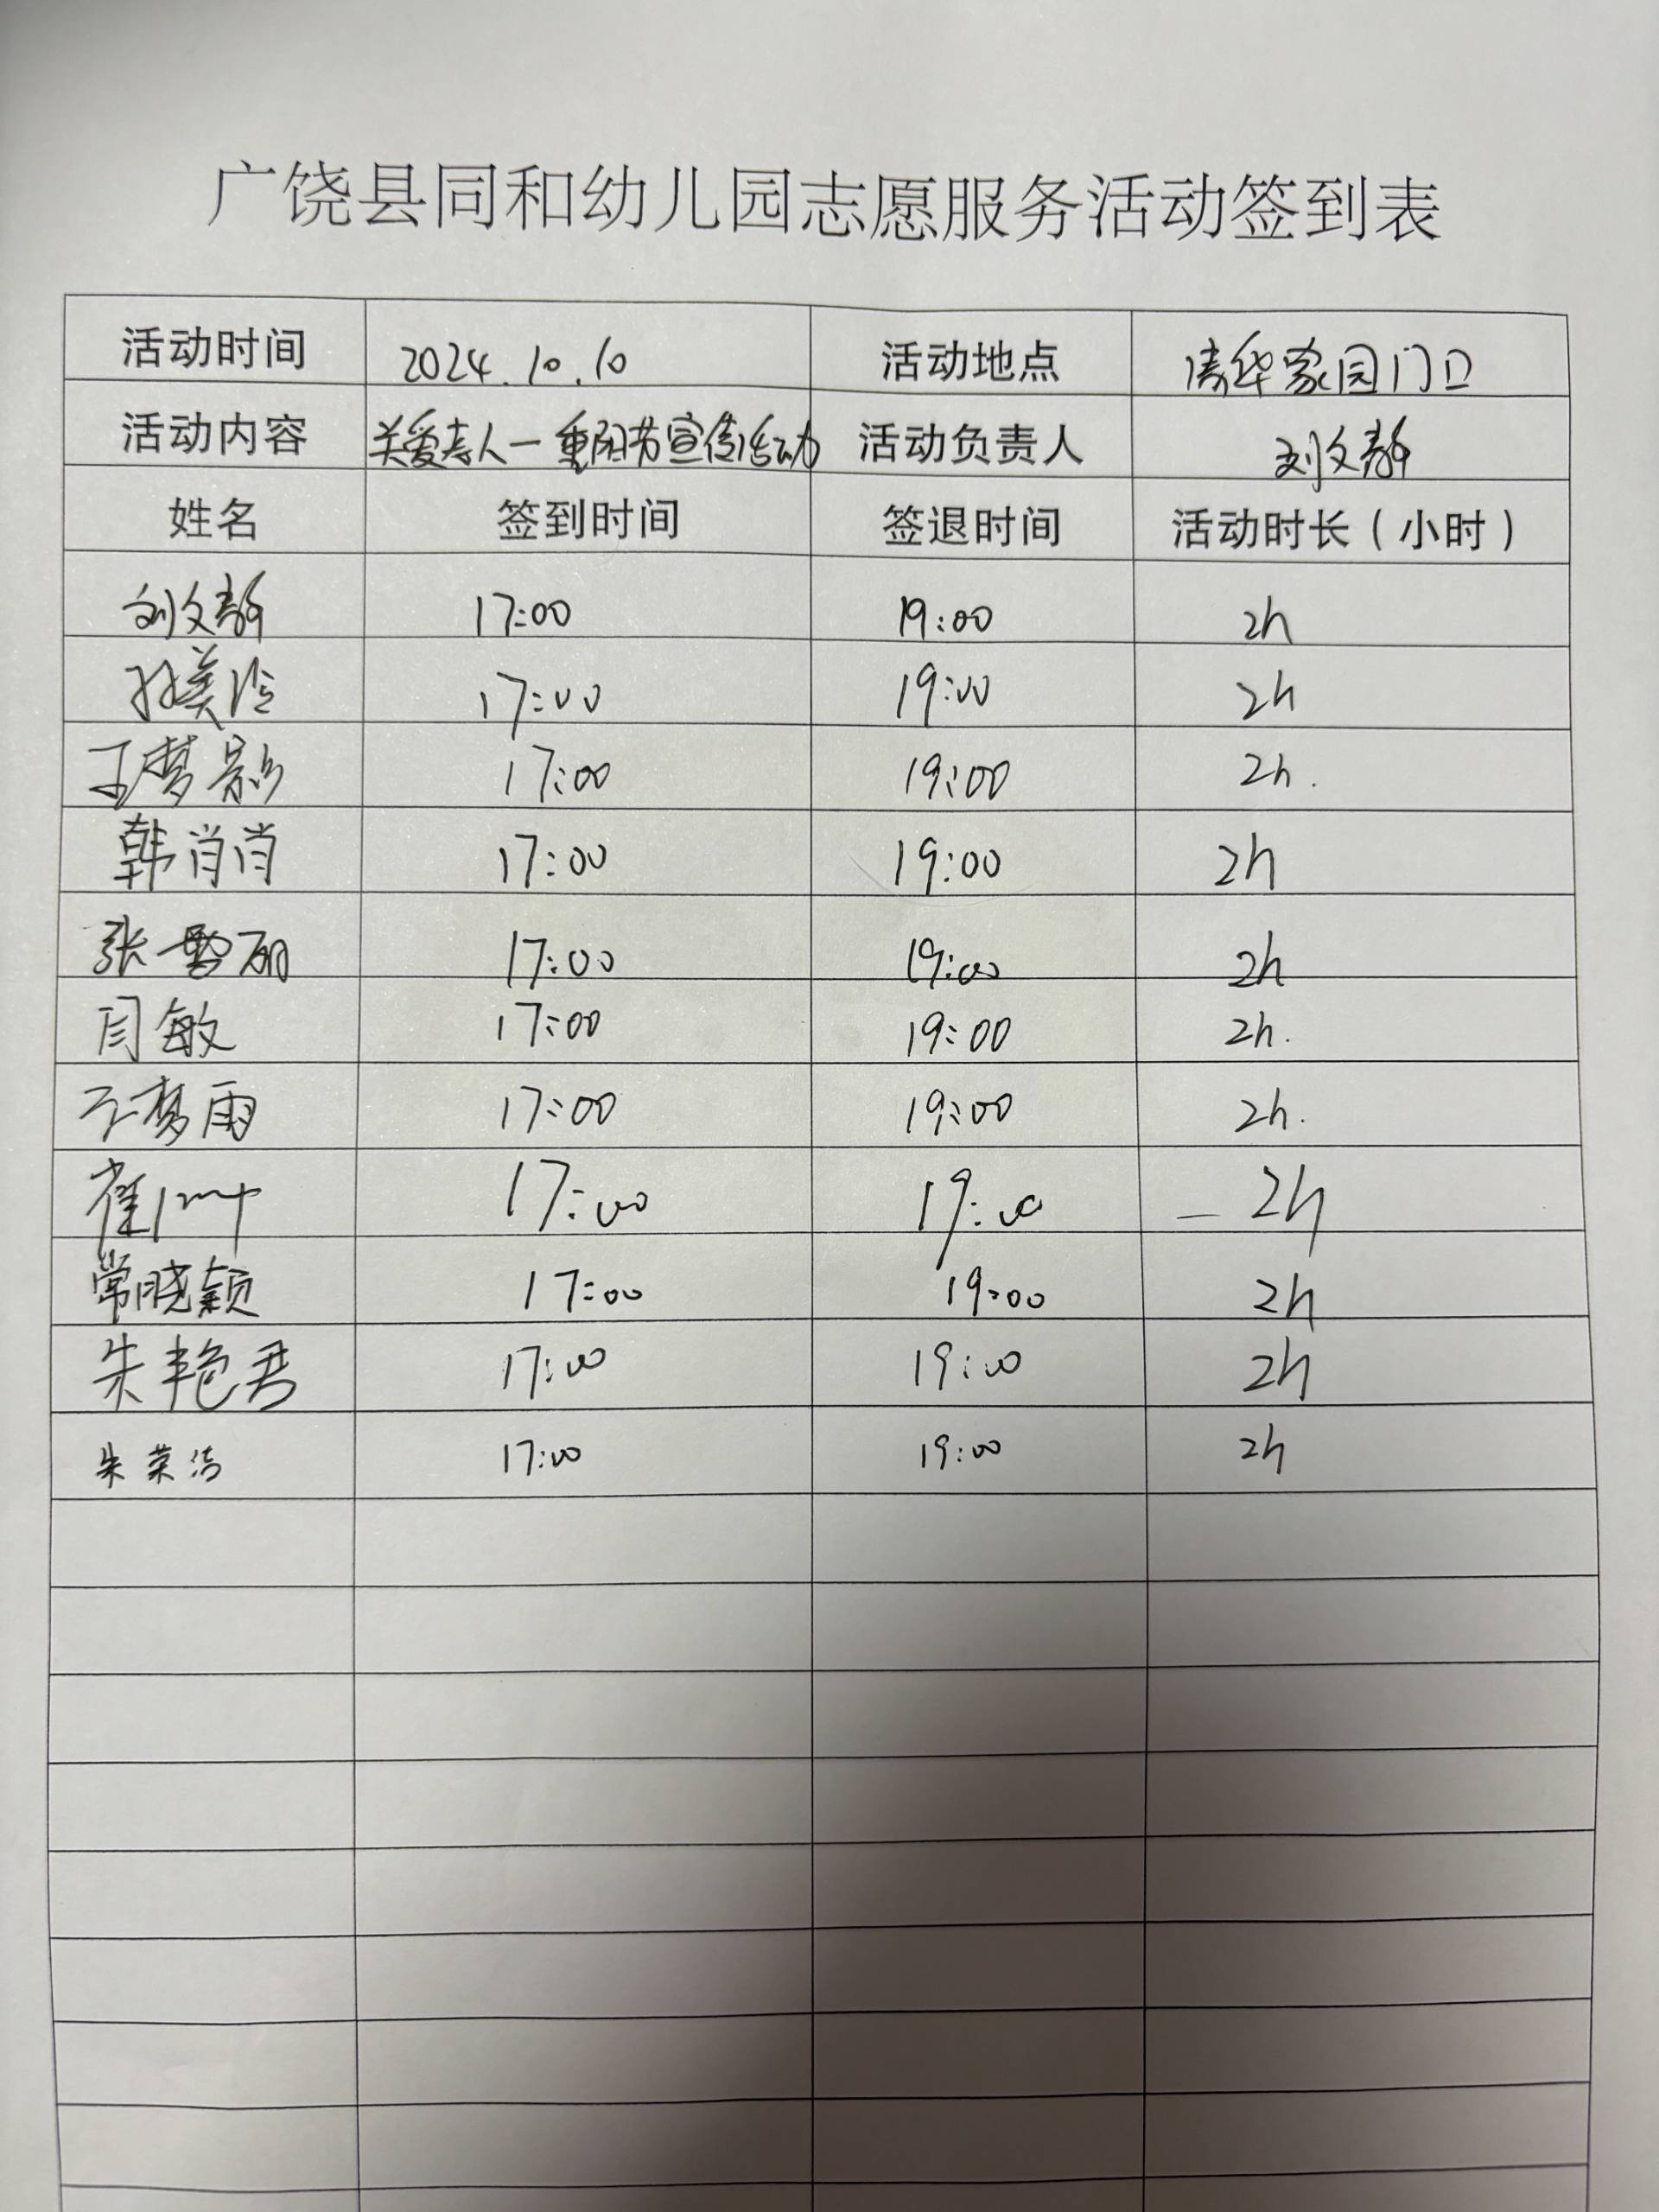 广饶县同和幼儿园志愿服务活动签到表
活动时间 2024.10.10 活动地点 清华家园门口
活动内容 关爱老人一重阳节宣传活动 活动负责人 刘文静
姓名 签到时间 签退时间 活动时长(小时)
刘文静 17:00 19:00 2h
孙美玲 17:00 19:00 2h
王梦影 17:00 19:00 2h.
韩肖肖 17:00 19:00 2h
张雪丽 17:00 19:00 2h
闫敏 17:00 19:00 2h.
王梦雨 17:00 19:00 2h.
17:00 19:00 2h
常晓颖 17:00 19:00 2h
朱艳君 17:00 19:00 2h
朱荣洁 17:00 19:00 2h